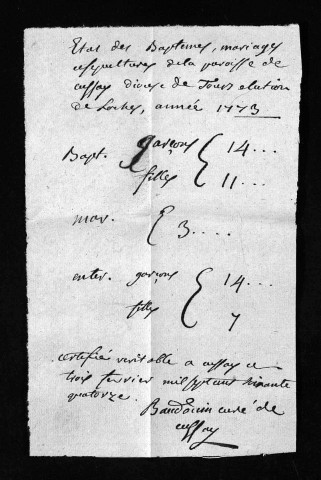 Etat des Baptemes, mariages
et sepultures de la paroisse de
cussay diocese de Tours election
de Loches, année 1773
Bapt. garçons { 14...
filles 11...
mar. { 3....
enter. garçons { 14...
filles 7
certifié veritable a cussay ce
trois fevrier mil sept cent soixante
quatorze. Baudouin curé de
cussay